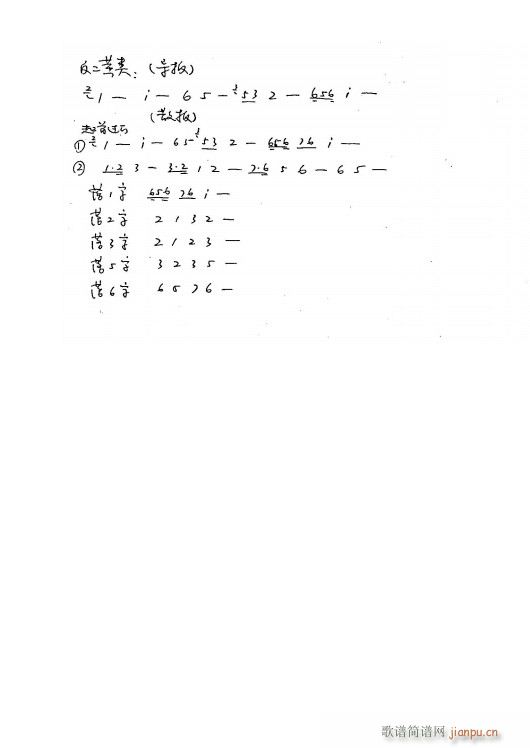 反二黄类：(导板)
2 1 — i — 6 5 — 53 2 — 656 i —
(散板)
① 2 1 — i — 65 — 53 2 — 656 76 i —
② 1·2 3 — 3·2 1 2 — 7·6 5 6 — 6 5 —
落1字 656 76 i —
落2字 2 1 3 2 —
落3字 2 1 2 3 —
落5字 3 2 3 5 —
落6字 6 5 7 6 —
歌谱简谱网 jianpu.cn